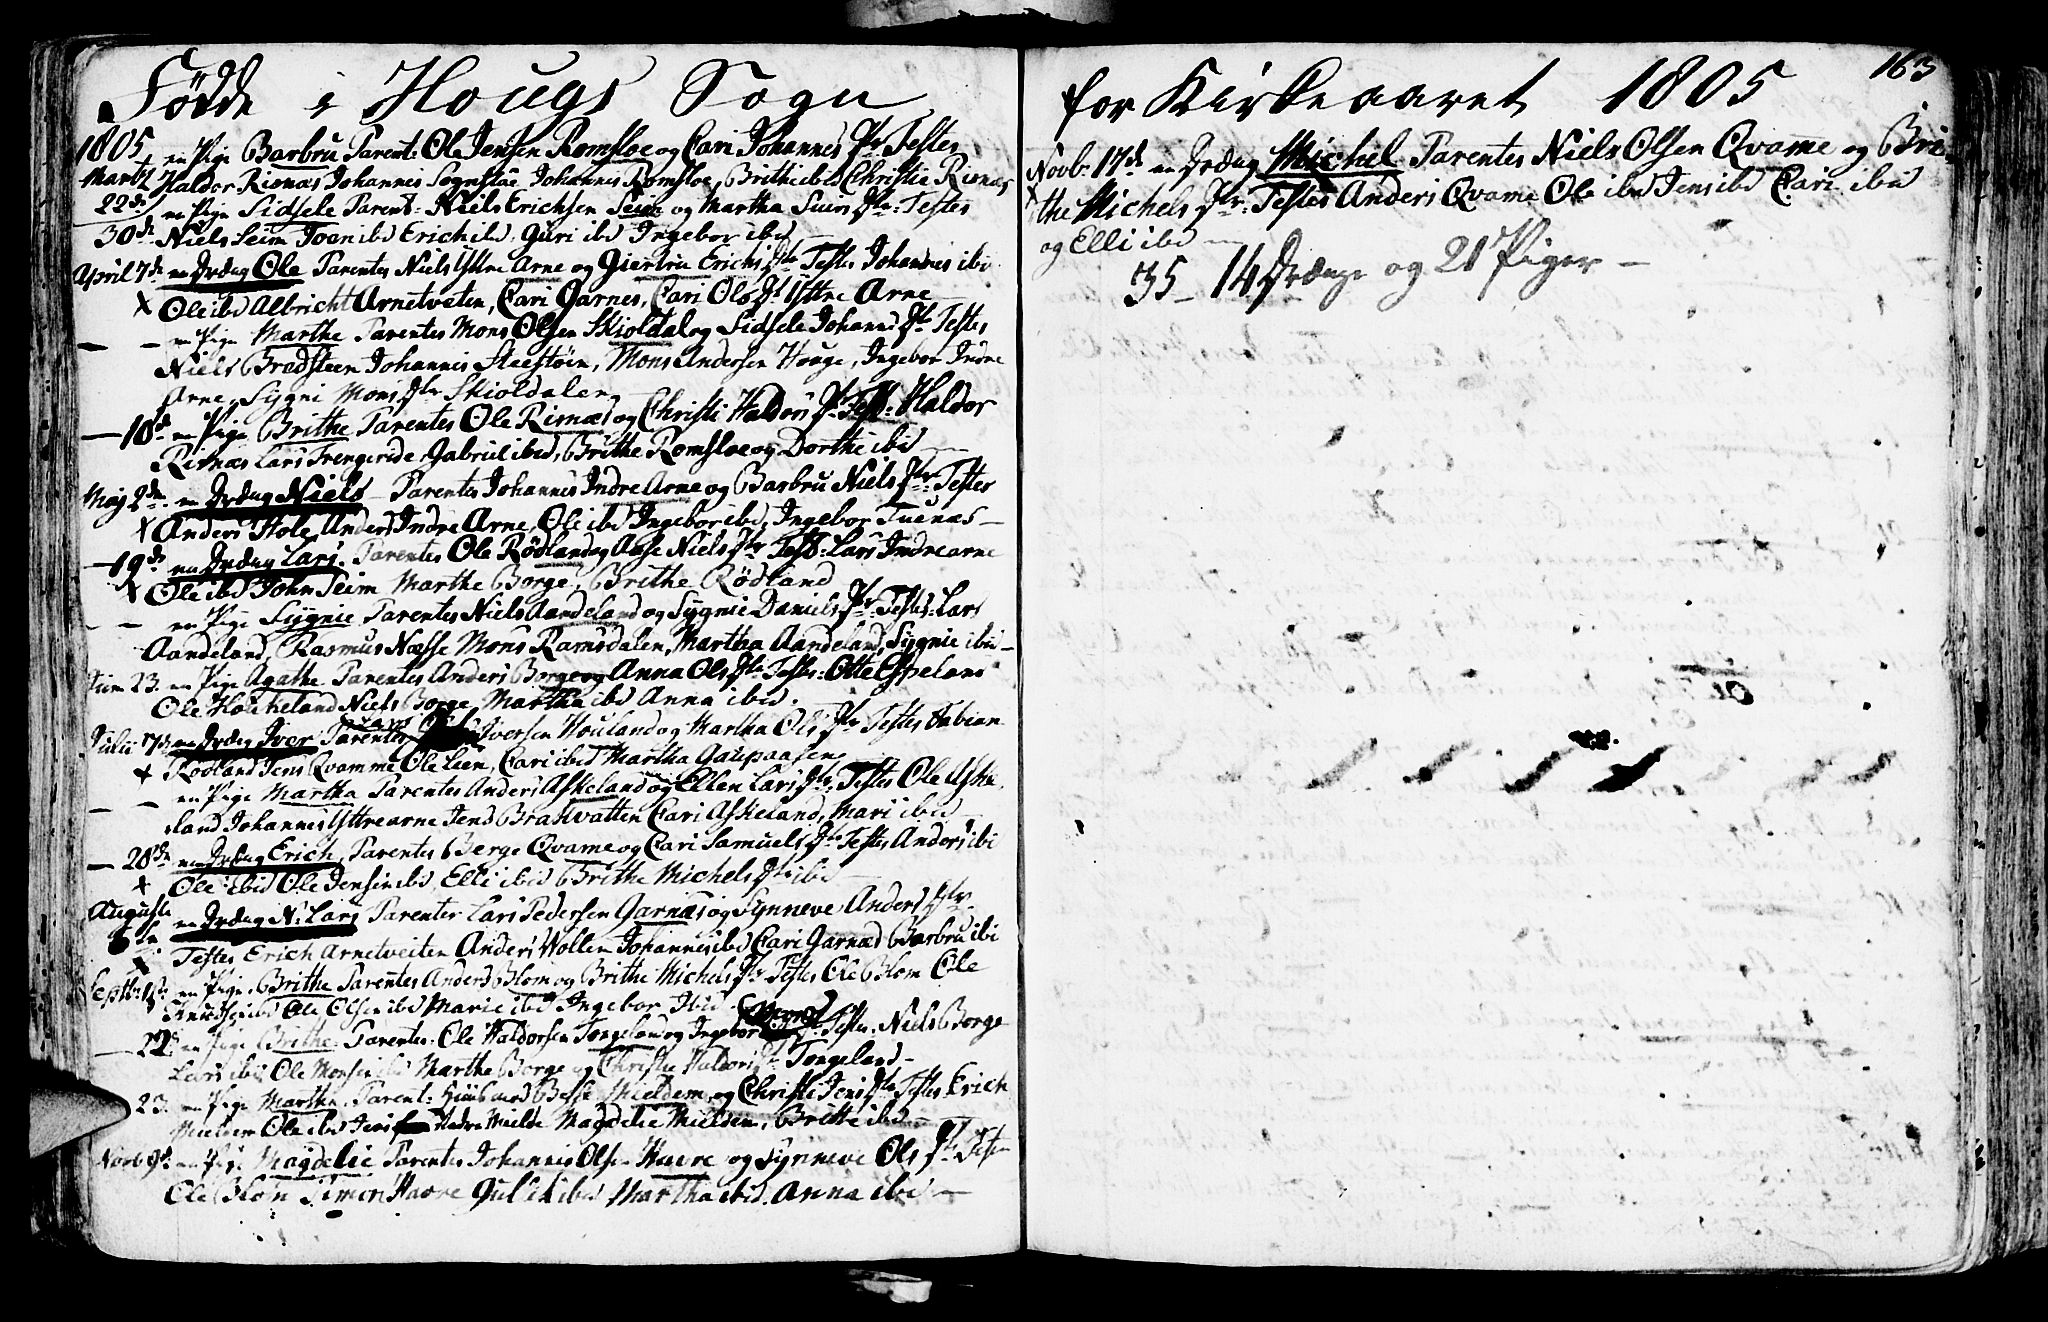 Fødde i Hougs Sogn
1805 en Pige Barbru Parent: Ole Jensen Romsloe og Cari Johannes Dtr Testes
Haldor Risnæs Johannes Johannes Romsloe, Brithe ibid Christie Risnæs
22de en Pige Sidsele Parent: Niels Erichsen Seim og Martha Dtr: Testes
30de Niels Seim ibd Erich ibd, Guri ibd Ingebor ibd
April 7de en Dræng Ole Parentes Niels Yttre Arne og Giertru Erichs Dtr Testes Johannes ibi
x Ole ibd Albricht Arnetveten, Cari Garnes, Cari Ols Dt Yttre Arne
- - en Pige Marthe Parentes Mons Olsen Skioldal og Sidsele Johans Dtr Testes
Niels Bredsteen Johannes Mons Andersen Houge, Ingebor Indre
Arne, Sygni Mons Dtr Skioldalen
- 18de en Pige Brithe Parentes Ole Risnæs og Christi Haldors Dtr Test: Haldor
Risnæs Lars Gabriel ibid, Brithe Romsloe og Dorthe ibid
Maj 2de en Dræng Niels Parentes Johannes Indre Arne og Barbru Niels Dtr Testes
x Anders Hole Anders Indre Arne, Ole ibd Ingebor ibd, Ingebor Tuenæs
- 19de en Dræng Lars. Parentes Ole Rødland og Aase Niels Dtr Test: Lars Indrearne
x Ole ibd John Seim Marthe Borge, Brithe Rødland
- - en Pige Sygnie Parentes Niels Aandeland og Sygnie Daniels Dtr Testes: Lars
Aandeland, Rasmus Næsse Mons Ramsdalen, Martha Aandeland, Sygnie ibid
Juni 23. en Pige Agathe. Parentes Anders Borge og Anna Ols Dtr Testes: Otte Espeland
Ole Houkeland Niels Borge Martha ibd Anna ibid.
Julii 7de en Dræng Iver Parentes Iversen Houland og Martha Ols Dtr Testes Fabian
x Rødland Jens Qvamme Ole Leen, Cari ibid Martha Gaupaasen
- - en Pige Martha Parentes Anders Askeland og Ellen Lars Dtr, Testes Ole Aske
land Johannes Yttrearne Jens Brakvatten Cari Askeland, Mari ibid
- 28de en Dræng Erich, Parentes Berge Qvame og Cari Samuels Dtr Testes Anders ibi
x Ole ibid Ole Jensen ibd, Elli ibid Brithe Michels Dtr ibid
Augusti en Dræng N: Lars Parentes Lars Pedersen Garnæs og Synneve Anders Dtr
x Testes Erich Arnetveiten Anders Wollem Johannes ibd Cari Garnæs Barbru ibi
Septb: 1ste en Pige Brithe Parentes Anders Blom og Brithe Michels Dtr Testes Ole Blom Ole
Knudsen ibd Ole Olsen ibd Marie ibid Ingebor Ibid
- 22 en Pige Brithe Parentes: Ole Haldorsen Tongeland og Ingebor Dtr Testes. Niels Borge
Lars ibid Ole Monsen ibd Marthe Borge og Christie Haldors Dtr Tongeland
23. en Pige Martha. Parent: Mieldem og Christi Jens Dtr Testes Erich
Mieldem Ole ibd Jens Nedre Mielde Magdelie Mieldem, Britte ibid
Novb 9de en Pige Magdelie Parentes Johannes Olsen Haure og Synneve Ols Dtr Testes
Ole Blom Simon Haure Gulik ibd Martha ibid. Anna ibd
for Kirkeaaret 1805 163
Novb: 17de en Dræng Michel Parentes Niels Olsen Qvame og Bri-
the Michels Dtr: Testes Anders Qvame Ole ibd Jens ibd Cari ibid
og Elli ibd
35 - 14 Drænge og 21 Piger